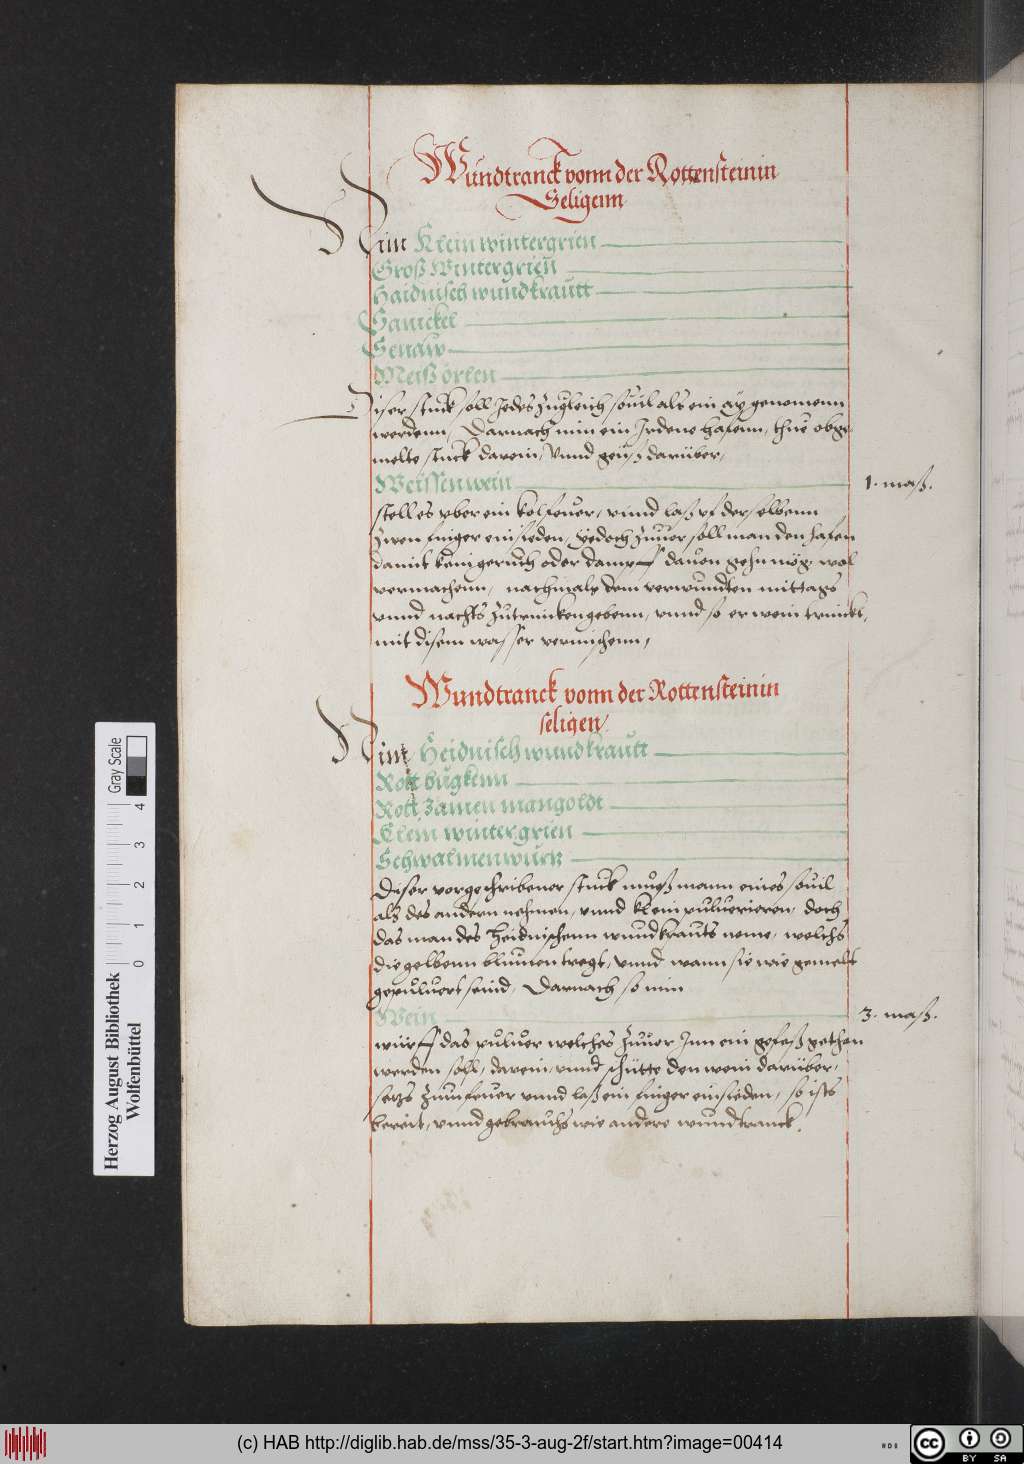 Wundtranck vonn der Rottensteinin
Seligenn
Nim Klein wintergrien
Groß Wintergrien
Haidnisch wundkrautt
Sanickel
Senaw
Meiß örlen
Diser stuck soll Jedes zugleich souil als ein ay genomenn
werdenn, Darnach nim ein Irdene hafenn, thue obge-
melte stuck darein, vnnd geuß darüber,
Weissen wein
1. maß.
stell es vber ein kolfeuer, vnnd laß vf derselbenn
zwen finger einsieden, yedoch zuuor soll man den hafen
damit kein geruch oder dampff dauon gehn mög, wol
vermachenn, nachmals dem verwundten mittags
vnnd nachts zutrincken gebenn, vnnd so er wein trinckt,
mit disem wasser vermischenn,
Wundtranck vonn der Rottensteinin
seligen.
Nim Heidnisch wundkrautt
Rott bugkenn
Rott zamen mangoldt
Klein wintergrien
Schwalmenwurtz
Diser vorgeschribener stuck muoß mann eines souil
als des andern nehmen, vnnd klein puluerieren, doch
das man des Heidnischenn wundkrauts neme, welchs
die gelbenn blumen tregt, vnnd wann sie wie gemelt
gepuluert seind, Darnach so nim
Wein
3. maß.
würff das puluer welches zuuor Inn ein gefaß gethan
werden soll, darein, vnnd schütte den wein darüber,
setzs zum feuer vnnd laß ein finger einsieden, so ists
bereit, vnnd gebrauchs wie andere wundtranck.
Herzog August Bibliothek
Wolfenbüttel
0 1 2 3 4
Gray Scale
(c) HAB http://diglib.hab.de/mss/35-3-aug-2f/start.htm?image=00414
cc BY SA